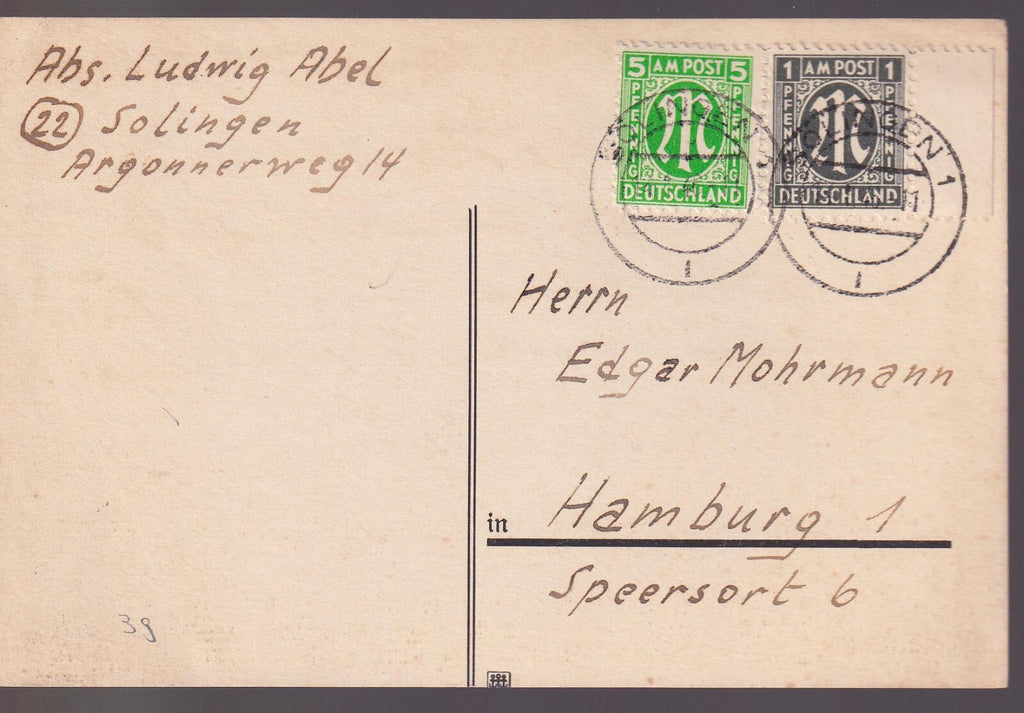 Abs. Ludwig Abel
22 Solingen
Argonnerweg 14
5 AM POST 5
PFENNIG PFENNIG
DEUTSCHLAND
1 AM POST 1
PFENNIG PFENNIG
DEUTSCHLAND
SOLINGEN 1
Herrn
Edgar Mohrmann
in Hamburg 1
Speersort 6
39